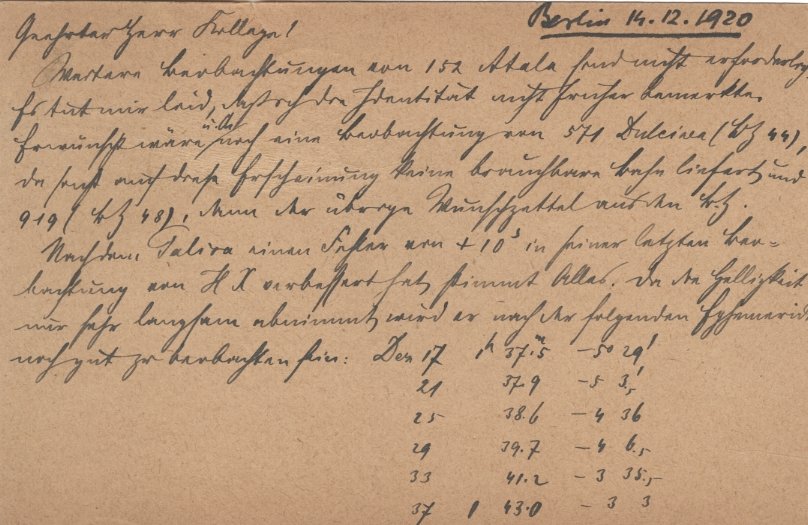 Berlin 14.12.1920
Geehrter Herr Kollege!
Weitere Beobachtungen von 152 Atala sind nicht erforderlich
Es tut mir leid, daß ich die Identität nicht früher bemerkte.
Erwünscht wäre noch eine Beobachtung von 571 Dulcinea (BZ 44),
da sonst auch diese Erscheinung keine brauchbare Bahn liefert, und
919 (BZ 48), dann der übrige Wunschzettel aus den B.Z.
Nachdem Palisa einen Fehler von + 10ˢ in seiner letzten Beo=
bachtung von HX verbessert hat, stimmt Alles. Da die Helligkeit
nur sehr langsam abnimmt, wird er nach der folgenden Ephemeride
noch gut zu beobachten sein: Dez 17 1ʰ 37.ᵐ5 −5° 29'
21 37.9 −5 3,'
25 38.6 −4 36
29 39.7 −4 6,5
33 41.2 −3 35,5
37 1 43.0 −3 3